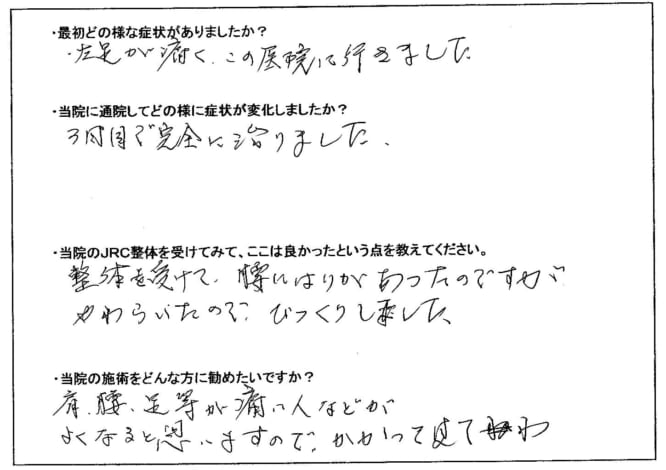 ・最初どの様な症状がありましたか？
・左足が痛く、この医院に行きました
・当院に通院してどの様に症状が変化しましたか？
3回目で完全に治りました、
・当院のJRC整体を受けてみて、ここは良かったという点を教えてください。
整体を受けて、腰にはりがあったのですが
やわらいたので、びっくりしました、
・当院の施術をどんな方に勧めたいですか？
肩、腰、足等が痛い人などが
よくなると思いますので、かかって見て